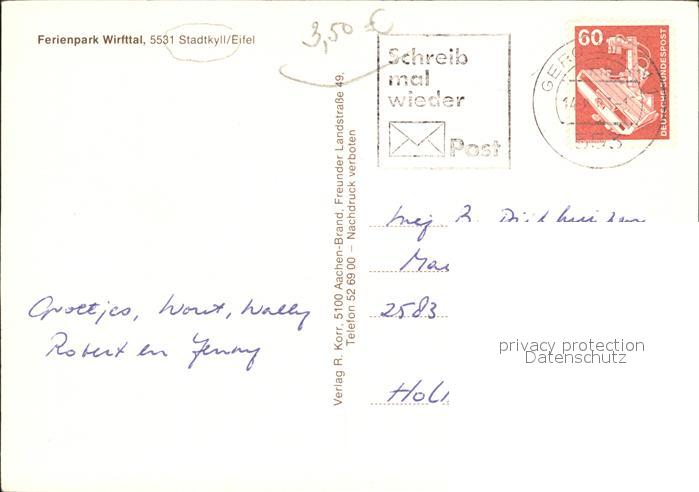 Ferienpark Wirfttal, 5531 Stadtkyll/Eifel
3,50 €
Schreib
mal
wieder
Post
60
DEUTSCHE BUNDESPOST
GER
14
553
Verlag R. Korr, 5100 Aachen-Brand, Freunder Landstraße 49,
Telefon: 52 69 00 – Nachdruck verboten
Groetjes, Wout, Wally
Robert en Jenny
Mej
2583
privacy protection
Datenschutz